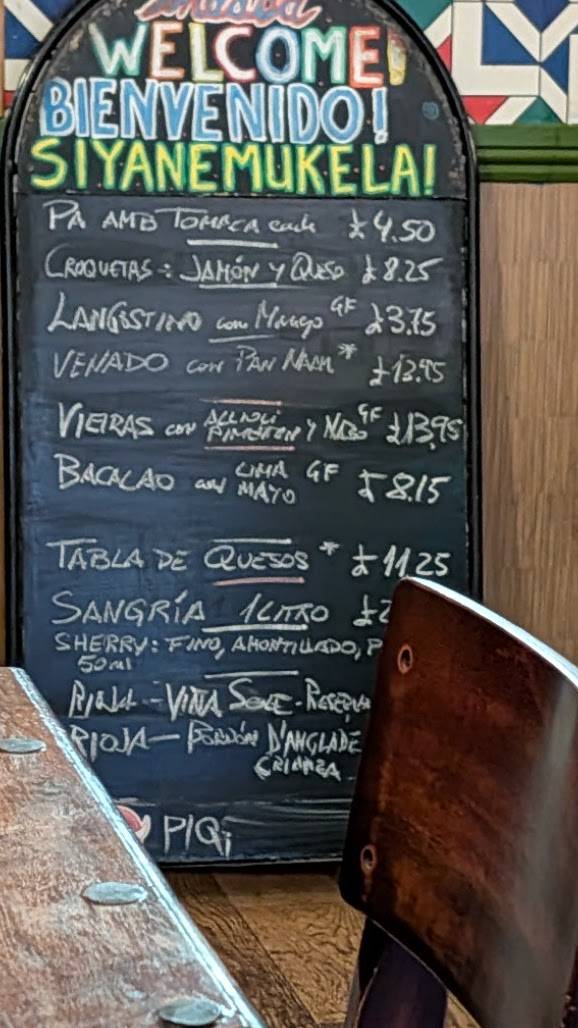 WELCOME!
BIENVENIDO!
SIYANEMUKELA!
PA AMB TOMACA £4.50
CROQUETAS: JAMÓN Y QUESO £8.25
LANGOSTINO con Mango GF £3.75
VENADO con PAN NAAN* £13.95
VIEIRAS con ALLIOLI PIMENTON Y NABO GF £13.95
BACALAO con LIMA MAYO GF £8.15
TABLA DE QUESOS* £11.25
SANGRÍA 1 LITRO £2
SHERRY: FINO, AMONTILLADO, P
50ml
RIOJA - VIÑA - RESERVA
RIOJA - D'ANGLADE
CRIANZA
PIQi